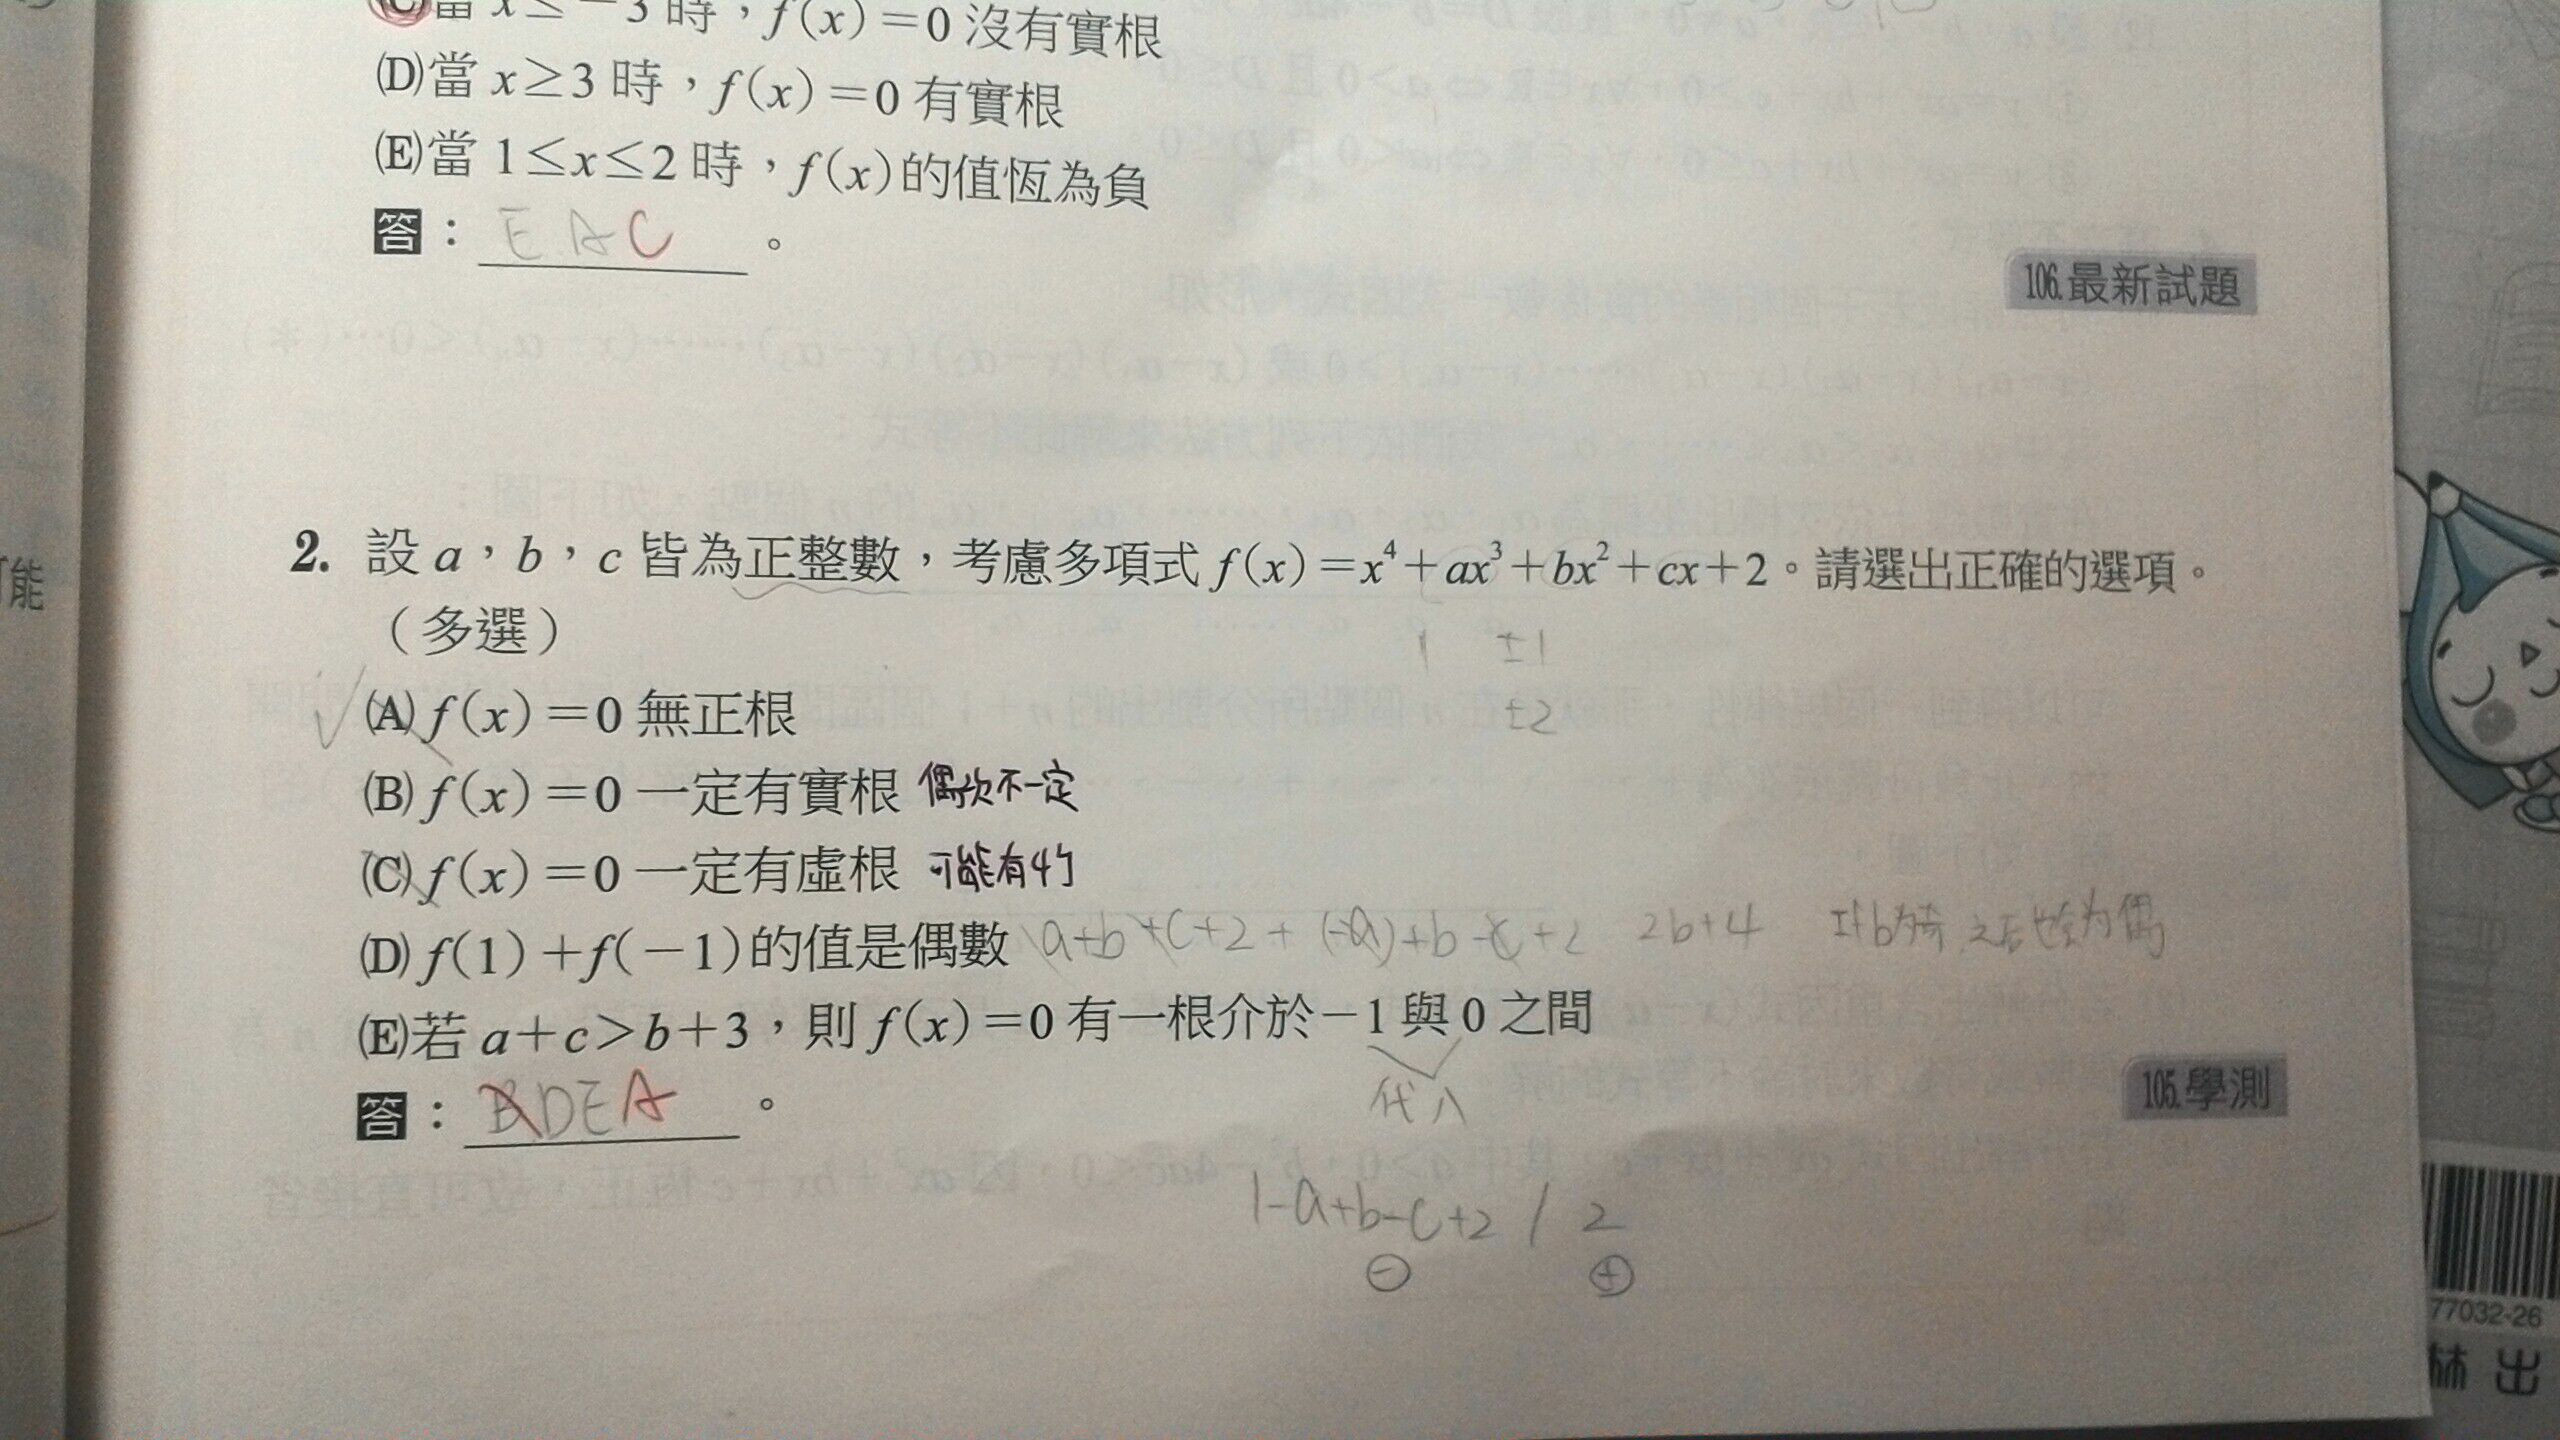 (C)當 x≤−3 時，f(x)=0 沒有實根
(D)當 x≥3 時，f(x)=0 有實根
(E)當 1≤x≤2 時，f(x)的值恆為負
答：EAC。
106.最新試題
2. 設 a，b，c 皆為正整數，考慮多項式 f(x)=x⁴+ax³+bx²+cx+2。請選出正確的選項。
（多選）
1 ±1
±2
(A) f(x)=0 無正根
(B) f(x)=0 一定有實根 偶次不一定
可能
(C) f(x)=0 一定有虛根 可能有4個
(D) f(1)+f(−1)的值是偶數 a+b+c+2+(-a)+b-c+2 2b+4
(E)若 a+c>b+3，則 f(x)=0 有一根介於−1 與 0 之間
代入
答：BDEA。
105.學測
1-a+b-c+2 / 2
⊖ ⊕
77032-26
林 出